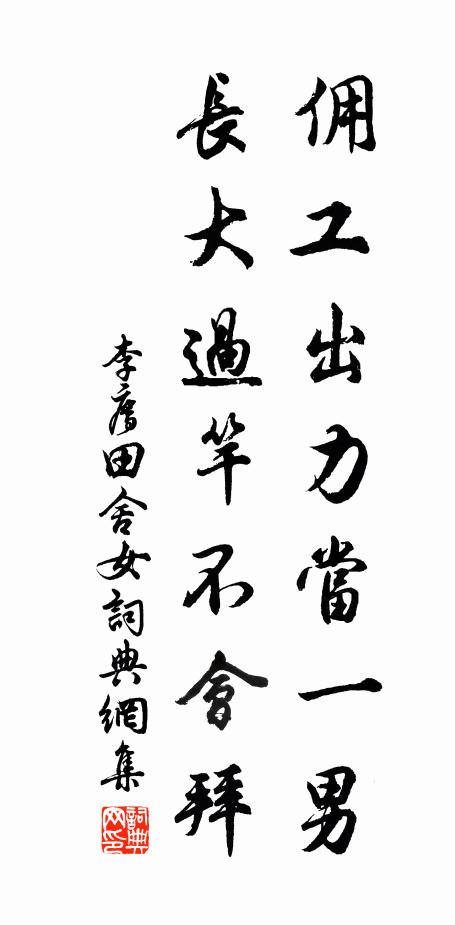 佣工出力當一男
長大過竿不會拜
李廌田舍女詞典網集
詞典網印